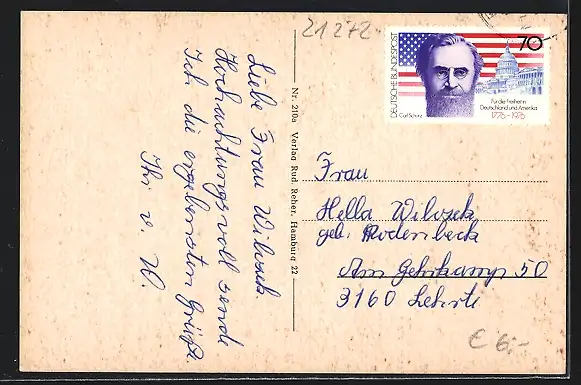 21272
DEUTSCHE BUNDESPOST
70
Für die Freiheit in
Deutschland und Amerika
1776-1976
Carl Schurz
Liebe Frau Wilosek
Hochachtungsvoll sende
Ich die ergebensten Grüße.
Ihr v. W.
Nr. 210a Verlag Rud. Reher, Hamburg 22
Frau
Hella Wilosek
geb. Rodenbeck
Am Gehrkamp 50
3160 Lehrte
€ 6,-